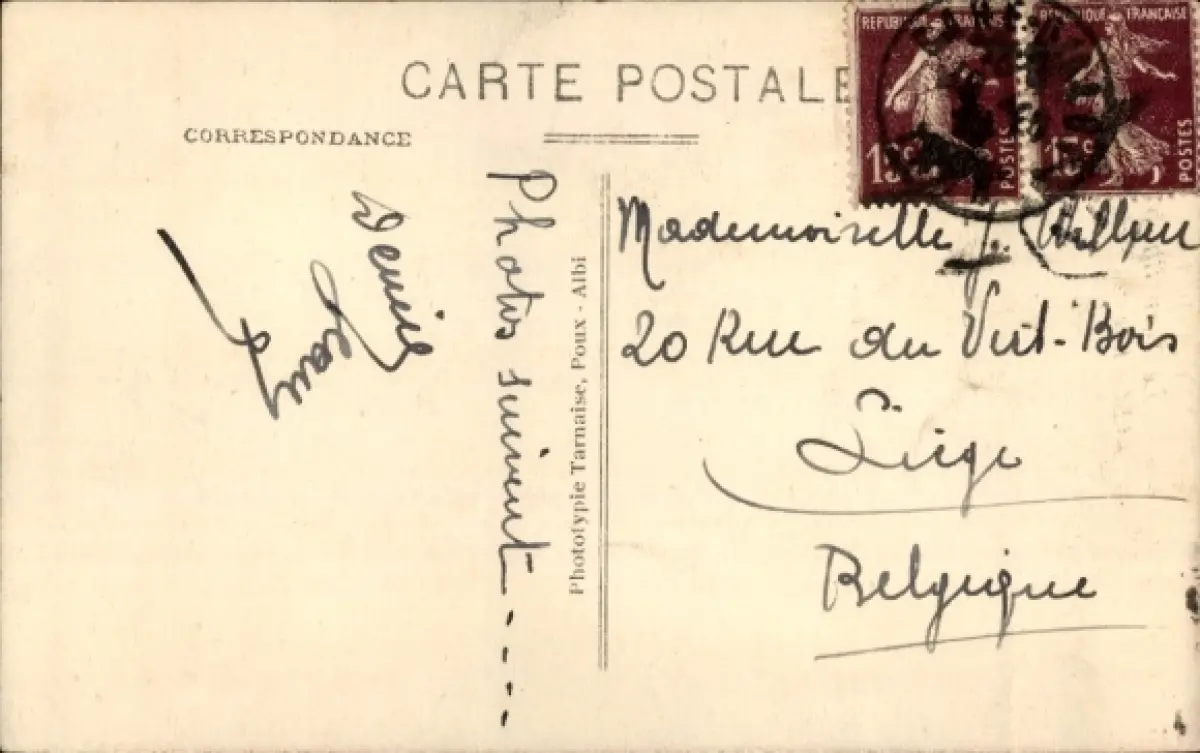 CARTE POSTALE
CORRESPONDANCE
REPUBLIQUE FRANÇAISE
POSTES
15c
REPUBLIQUE FRANÇAISE
POSTES
15c
Photos suivent----
Jean
Phototypie Tarnaise, Poux - Albi
Mademoiselle J.
20 Rue du Vert-Bois
Liège
Belgique